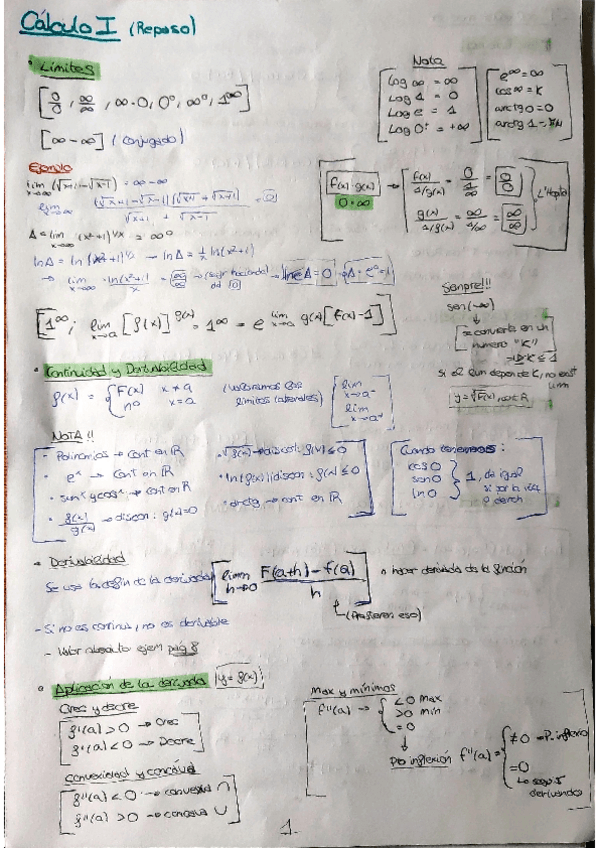 Cálculo I (Repaso)
• Límites
[0/0, ∞/∞, ∞·0, 0⁰, ∞⁰, 1^∞]
[∞-∞] (Conjugado)
Nota
Log ∞ = ∞
Log 1 = 0
Log e = 1
Log 0⁺ = +∞
e^∞ = ∞
cos ∞ = K
arctg 0 = 0
Ejemplo
lim x→∞ (√x+1 - √x-1) = ∞-∞
lim x→∞ (√x+1 - √x-1)(√x+1 + √x-1) / √x+1 + √x-1 = 0
A = lim x→∞ (x²+1)^1/x = ∞⁰
ln A = ln (x²+1)^1/x → ln A = 1/x ln(x²+1)
→ lim x→∞ ln(x²+1)/x = ∞/∞ → (seguir haciendo) = ln A = 0 · A = e⁰ = 1
f(x)·g(x)
0·∞
→ f(x) / 1/g(x) = 0 / 1/∞ = 0/0
g(x) / 1/f(x) = ∞ / 1/0 = ∞/∞
L'Hopital
[1^∞; lim x→a [f(x)]^g(x) = 1^∞ = e^lim x→a g(x)[f(x)-1]]
Siempre!!!
sen(→∞)
↓
se convierte en un
numero "K"
Si el lim depende K, no exist
lim
• Continuidad y Derivabilidad
f(x) = { F(x) x≠a
nº x=a
lim x→a⁻
lim x→a⁺
NOTA!!
• Polinomios → Cont en ℝ
• eˣ → Cont en ℝ
• senˣ y cosˣ → Cont en ℝ
• f(x)/g(x) → discon: g(x)=0
• √f(x) → discont: f(x) ≤ 0
• ln(f(x)) discon: f(x) ≤ 0
• arctg → cont en ℝ
Cuando tenemos:
cos 0
sen 0
ln 0
} 1, da igual
si por la izq
o derch
• Derivabilidad
Se usa la defin de la derivada [lim h→0 F(a+h) - f(a) / h] o hacer derivada de la función
- Si no es continua, no es derivable
- Valor absoluto ejem pag 8
• Aplicación de la derivada y = f(x)
Crec y decre
f'(a) > 0 → Crec
f'(a) < 0 → Decre
Convexidad y concavid
f''(a) < 0 → convexa ∩
f''(a) > 0 → concava ∪
Max y mínimos
f''(a) → { <0 max
>0 min
=0
↓
Pto inflexión f'''(a) = { ≠0 → P. inflexión
=0
derivando
1.